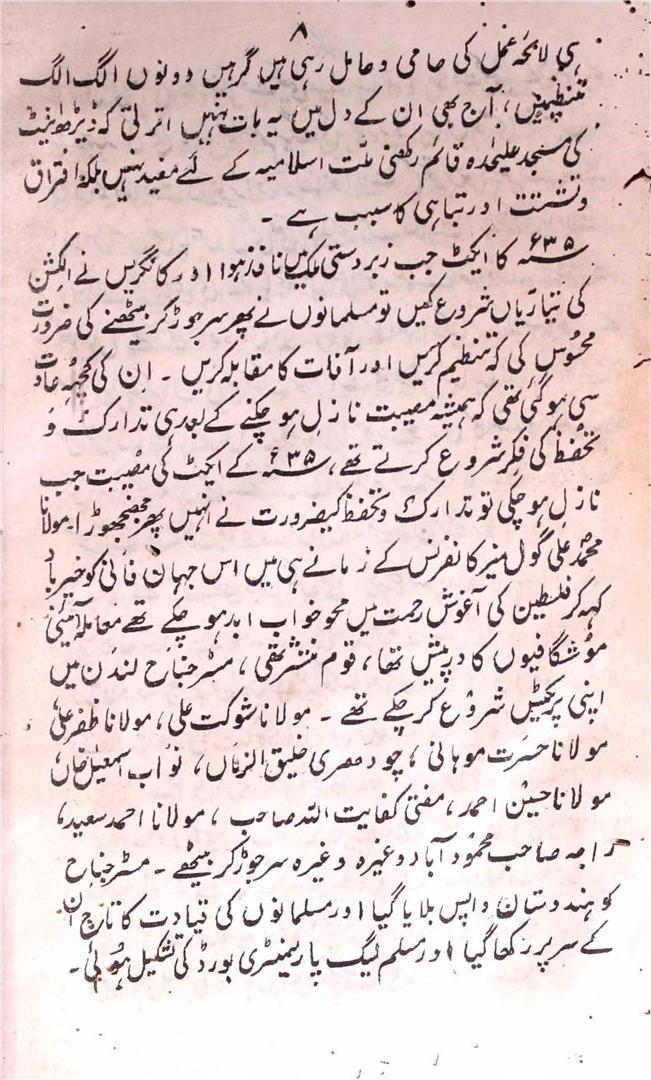 ۸
ہی لائحہ عمل کی حامی و عامل رہی ہیں مگر ہیں دونوں الگ الگ
تنظیمیں، آج بھی ان کے دل میں یہ بات نہیں اترتی کہ ڈیڑھ اینٹ
کی مسجد علیحدہ قائم رکھنی ملت اسلامیہ کے لئے مفید نہیں بلکہ افتراق
و تشتت اور تباہی کا سبب ہے ۔
۳۵ء کا ایکٹ جب زبردستی ملک میں نافذ ہوا اور کانگریس نے الکشن
کی تیاریاں شروع کیں تو مسلمانوں نے پھر سر جوڑ کر بیٹھنے کی ضرورت
محسوس کی کہ تنظیم کریں اور آفات کا مقابلہ کریں ۔ ان کی کچھ عادت
سی ہو گئی تھی کہ ہمیشہ مصیبت نازل ہو چکنے کے بعد ہی تدارک و
تحفظ کی فکر شروع کرتے تھے، ۳۵ء کے ایکٹ کی مصیبت جب
نازل ہو چکی تو تدارک و تحفظ کی ضرورت نے انہیں پھر جھنجھوڑا، مولانا
محمد علی گول میز کانفرنس کے زمانے ہی میں اس جہان فانی کو خیر باد
کہہ کر فلسطین کی آغوش رحمت میں محو خواب ابد ہو چکے تھے معاملہ آئینی
موشگافیوں کا درپیش تھا، قوم منتشر تھی، مسٹر جناح لندن میں
اپنی پریکٹس شروع کر چکے تھے ۔ مولانا شوکت علی، مولانا ظفر علی
مولانا حسرت موہانی، چودھری خلیق الزماں، نواب اسمعیل خاں
مولانا حسین احمد، مفتی کفایت اللہ صاحب، مولانا احمد سعید،
راجہ صاحب محمود آباد وغیرہ وغیرہ سر جوڑ کر بیٹھے ۔ مسٹر جناح
کو ہندوستان واپس بلایا گیا اور مسلمانوں کی قیادت کا تاج ان
کے سر پر رکھا گیا اور مسلم لیگ پارلیمنٹری بورڈ کی تشکیل ہوئی ۔